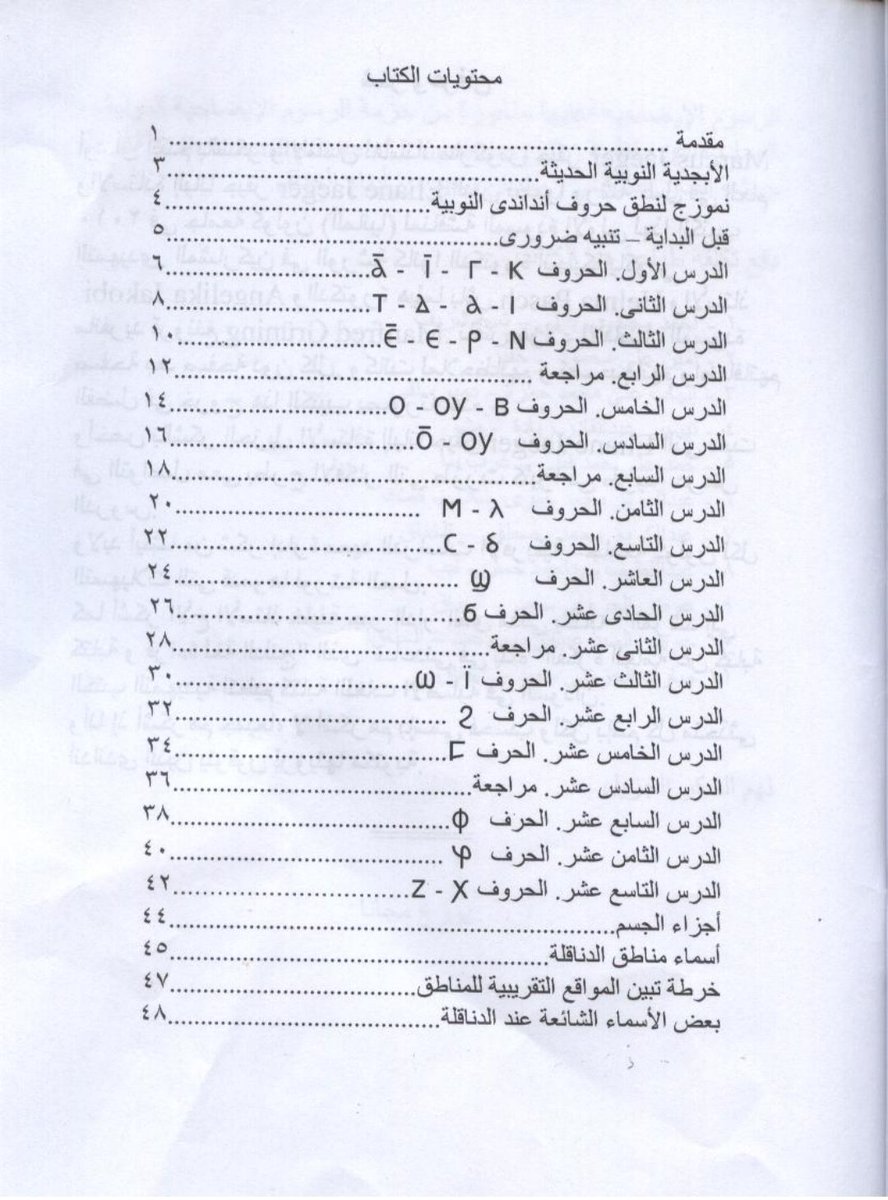 محتويات الكتاب
مقدمة ....................................................................١
الأبجدية النوبية الحديثة....................................................٣
نموزج لنطق حروف أنداندى النوبية ........................................٤
قبل البداية – تنبيه ضرورى................................................٥
الدرس الأول. الحروف ⲁ̄ - ⲓ̄ - ⲅ - ⲕ ....................................٦
الدرس الثانى. الحروف ⲧ - ⲇ - ⲁ - ⲓ....................................٨
الدرس الثالث. الحروف ⲉ̄ - ⲉ - ⲣ - ⲛ....................................١٠
الدرس الرابع. مراجعة ....................................................١٢
الدرس الخامس. الحروف ⲟ - ⲟⲩ - ⲃ ....................................١٤
الدرس السادس. الحروف ⲟ̄ - ⲟⲩ....................................١٦
الدرس السابع. مراجعة ....................................................١٨
الدرس الثامن. الحروف ⲙ - ⲗ ....................................٢٠
الدرس التاسع. الحروف ⲥ - ϭ....................................٢٢
الدرس العاشر. الحرف ϣ ....................................٢٤
الدرس الحادى عشر. الحرف б....................................٢٦
الدرس الثانى عشر. مراجعة....................................٢٨
الدرس الثالث عشر. الحروف ⲱ - ⲓ̈....................................٣٠
الدرس الرابع عشر. الحرف ϩ ....................................٣٢
الدرس الخامس عشر. الحرف ⳟ....................................٣٤
الدرس السادس عشر. مراجعة....................................٣٦
الدرس السابع عشر. الحرف ⲫ....................................٣٨
الدرس الثامن عشر. الحرف ⳡ ....................................٤٠
الدرس التاسع عشر. الحروف ⲍ - ⲭ....................................٤٢
أجزاء الجسم....................................................٤٤
أسماء مناطق الدناقلة....................................................٤٥
خرطة تبين المواقع التقريبية للمناطق....................................٤٧
بعض الأسماء الشائعة عند الدناقلة....................................٤٨